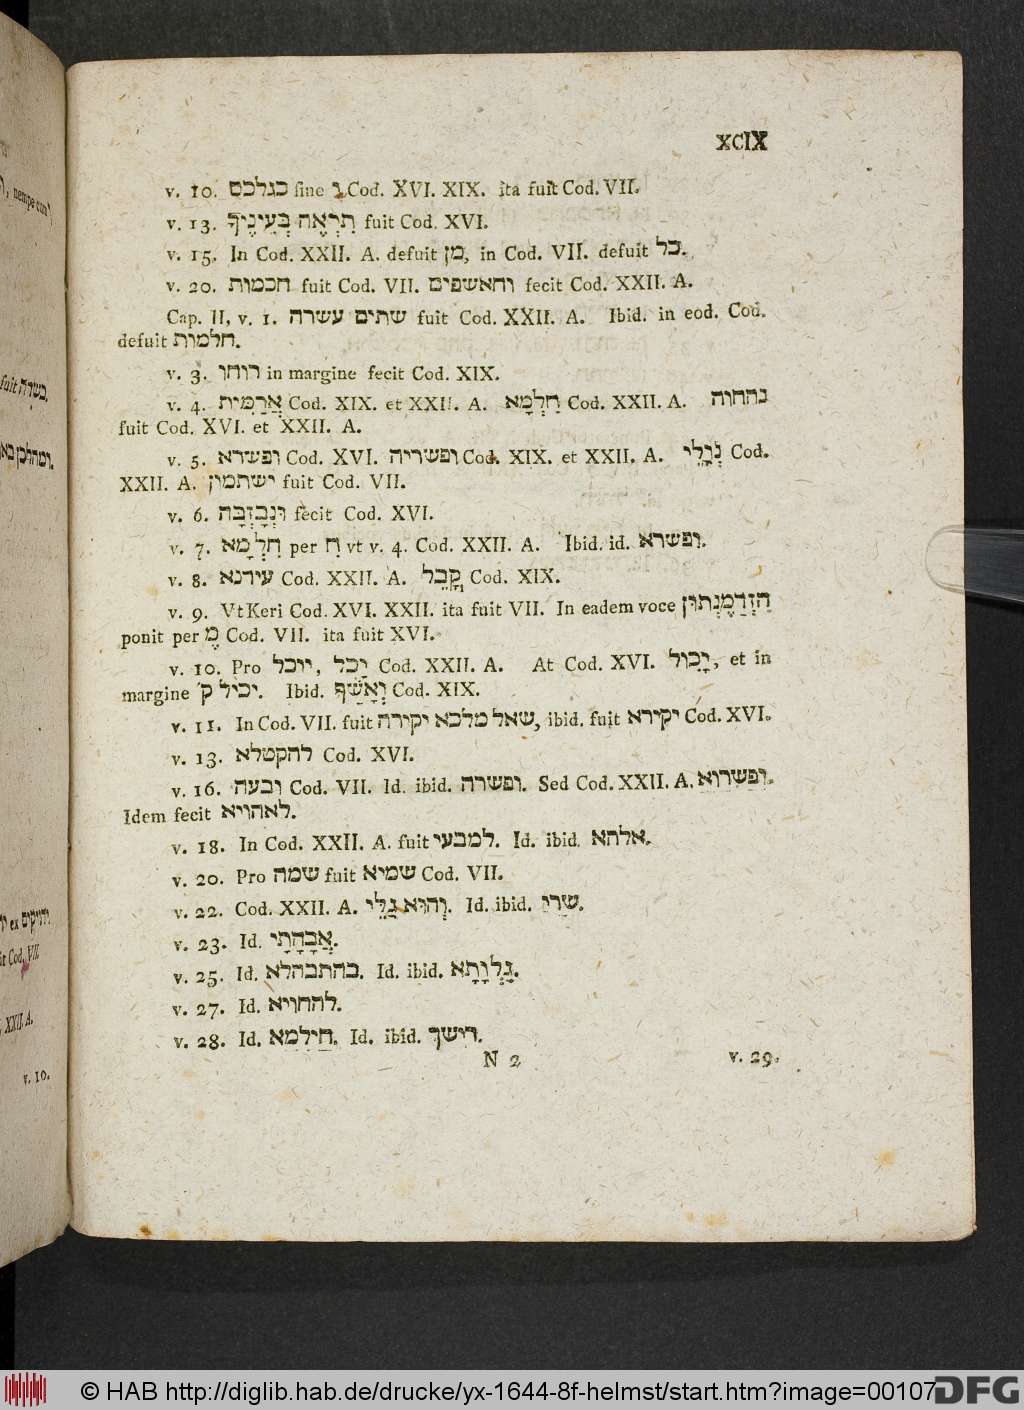 XCIX
v. 10. כגלכם sine ו Cod. XVI. XIX. ita fuit Cod. VII.
v. 13. תִרְאֶה בְּעֵינֶיךָ fuit Cod. XVI.
v. 15. In Cod. XXII. A. defuit מן, in Cod. VII. defuit כל.
v. 20. חכמות fuit Cod. VII. וחאשפים fecit Cod. XXII. A.
Cap. II, v. 1. שתים עשרה fuit Cod. XXII. A. Ibid. in eod. Cod.
defuit חלמות.
v. 3. רוחו in margine fecit Cod. XIX.
v. 4. אֲרַמִּית Cod. XIX. et XXII. A. חִלְמָא Cod. XXII. A. נהחוה
fuit Cod. XVI. et XXII. A.
v. 5. ופשרא Cod. XVI. ופשריה Cod. XIX. et XXII. A. נְוָלֵי Cod.
XXII. A. ישתמון fuit Cod. VII.
v. 6. וּנְבָזְבָּה fecit Cod. XVI.
v. 7. חִלְמָא per חִ vt v. 4. Cod. XXII. A. Ibid. id. ופשרא.
v. 8. עידנא Cod. XXII. A. קֳבֵל Cod. XIX.
v. 9. Vt Keri Cod. XVI. XXII. ita fuit VII. In eadem voce הִזְדַמֶנְתּוּן
ponit per מֶ Cod. VII. ita fuit XVI.
v. 10. Pro יוכל, יִכֻל Cod. XXII. A. At Cod. XVI. יָכוּל, et in
margine יכיל ק. Ibid. וְאָשַׁף Cod. XIX.
v. 11. In Cod. VII. fuit שאל מלכא יקירה, ibid. fuit יקירא Cod. XVI.
v. 13. להקטלא Cod. XVI.
v. 16. ובעה Cod. VII. Id. ibid. ופשרה. Sed Cod. XXII. A. ופשרוא.
Idem fecit לאהויא.
v. 18. In Cod. XXII. A. fuit למבעי. Id. ibid. אלהא.
v. 20. Pro שמה fuit שמיא Cod. VII.
v. 22. Cod. XXII. A. וְהוּא גָּלֵי. Id. ibid. שְׁרֵי.
v. 23. Id. אֲבָהָתָי.
v. 25. Id. בהתבהלא. Id. ibid. גָּלְוָתָא.
v. 27. Id. להחויא.
v. 28. Id. חֵילְמא. Id. ibid. רישך.
N 2 v. 29.
, nempe con
fuit בשרה.
ומהלכן באו.
ויהויקום ex
it Cod. VII.
XXII. A.
v. 10.
© HAB http://diglib.hab.de/drucke/yx-1644-8f-helmst/start.htm?image=00107
DFG